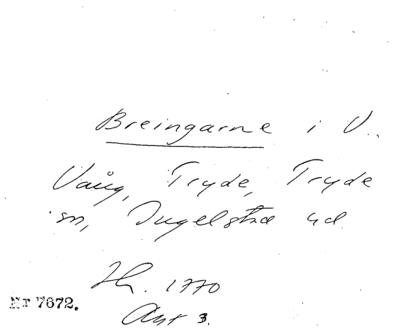 Breingarne i V.
Vång, Tryde, Tryde
sn, Ingelstad hd
Lh. 1770
Akt 3.
Nr 7672.